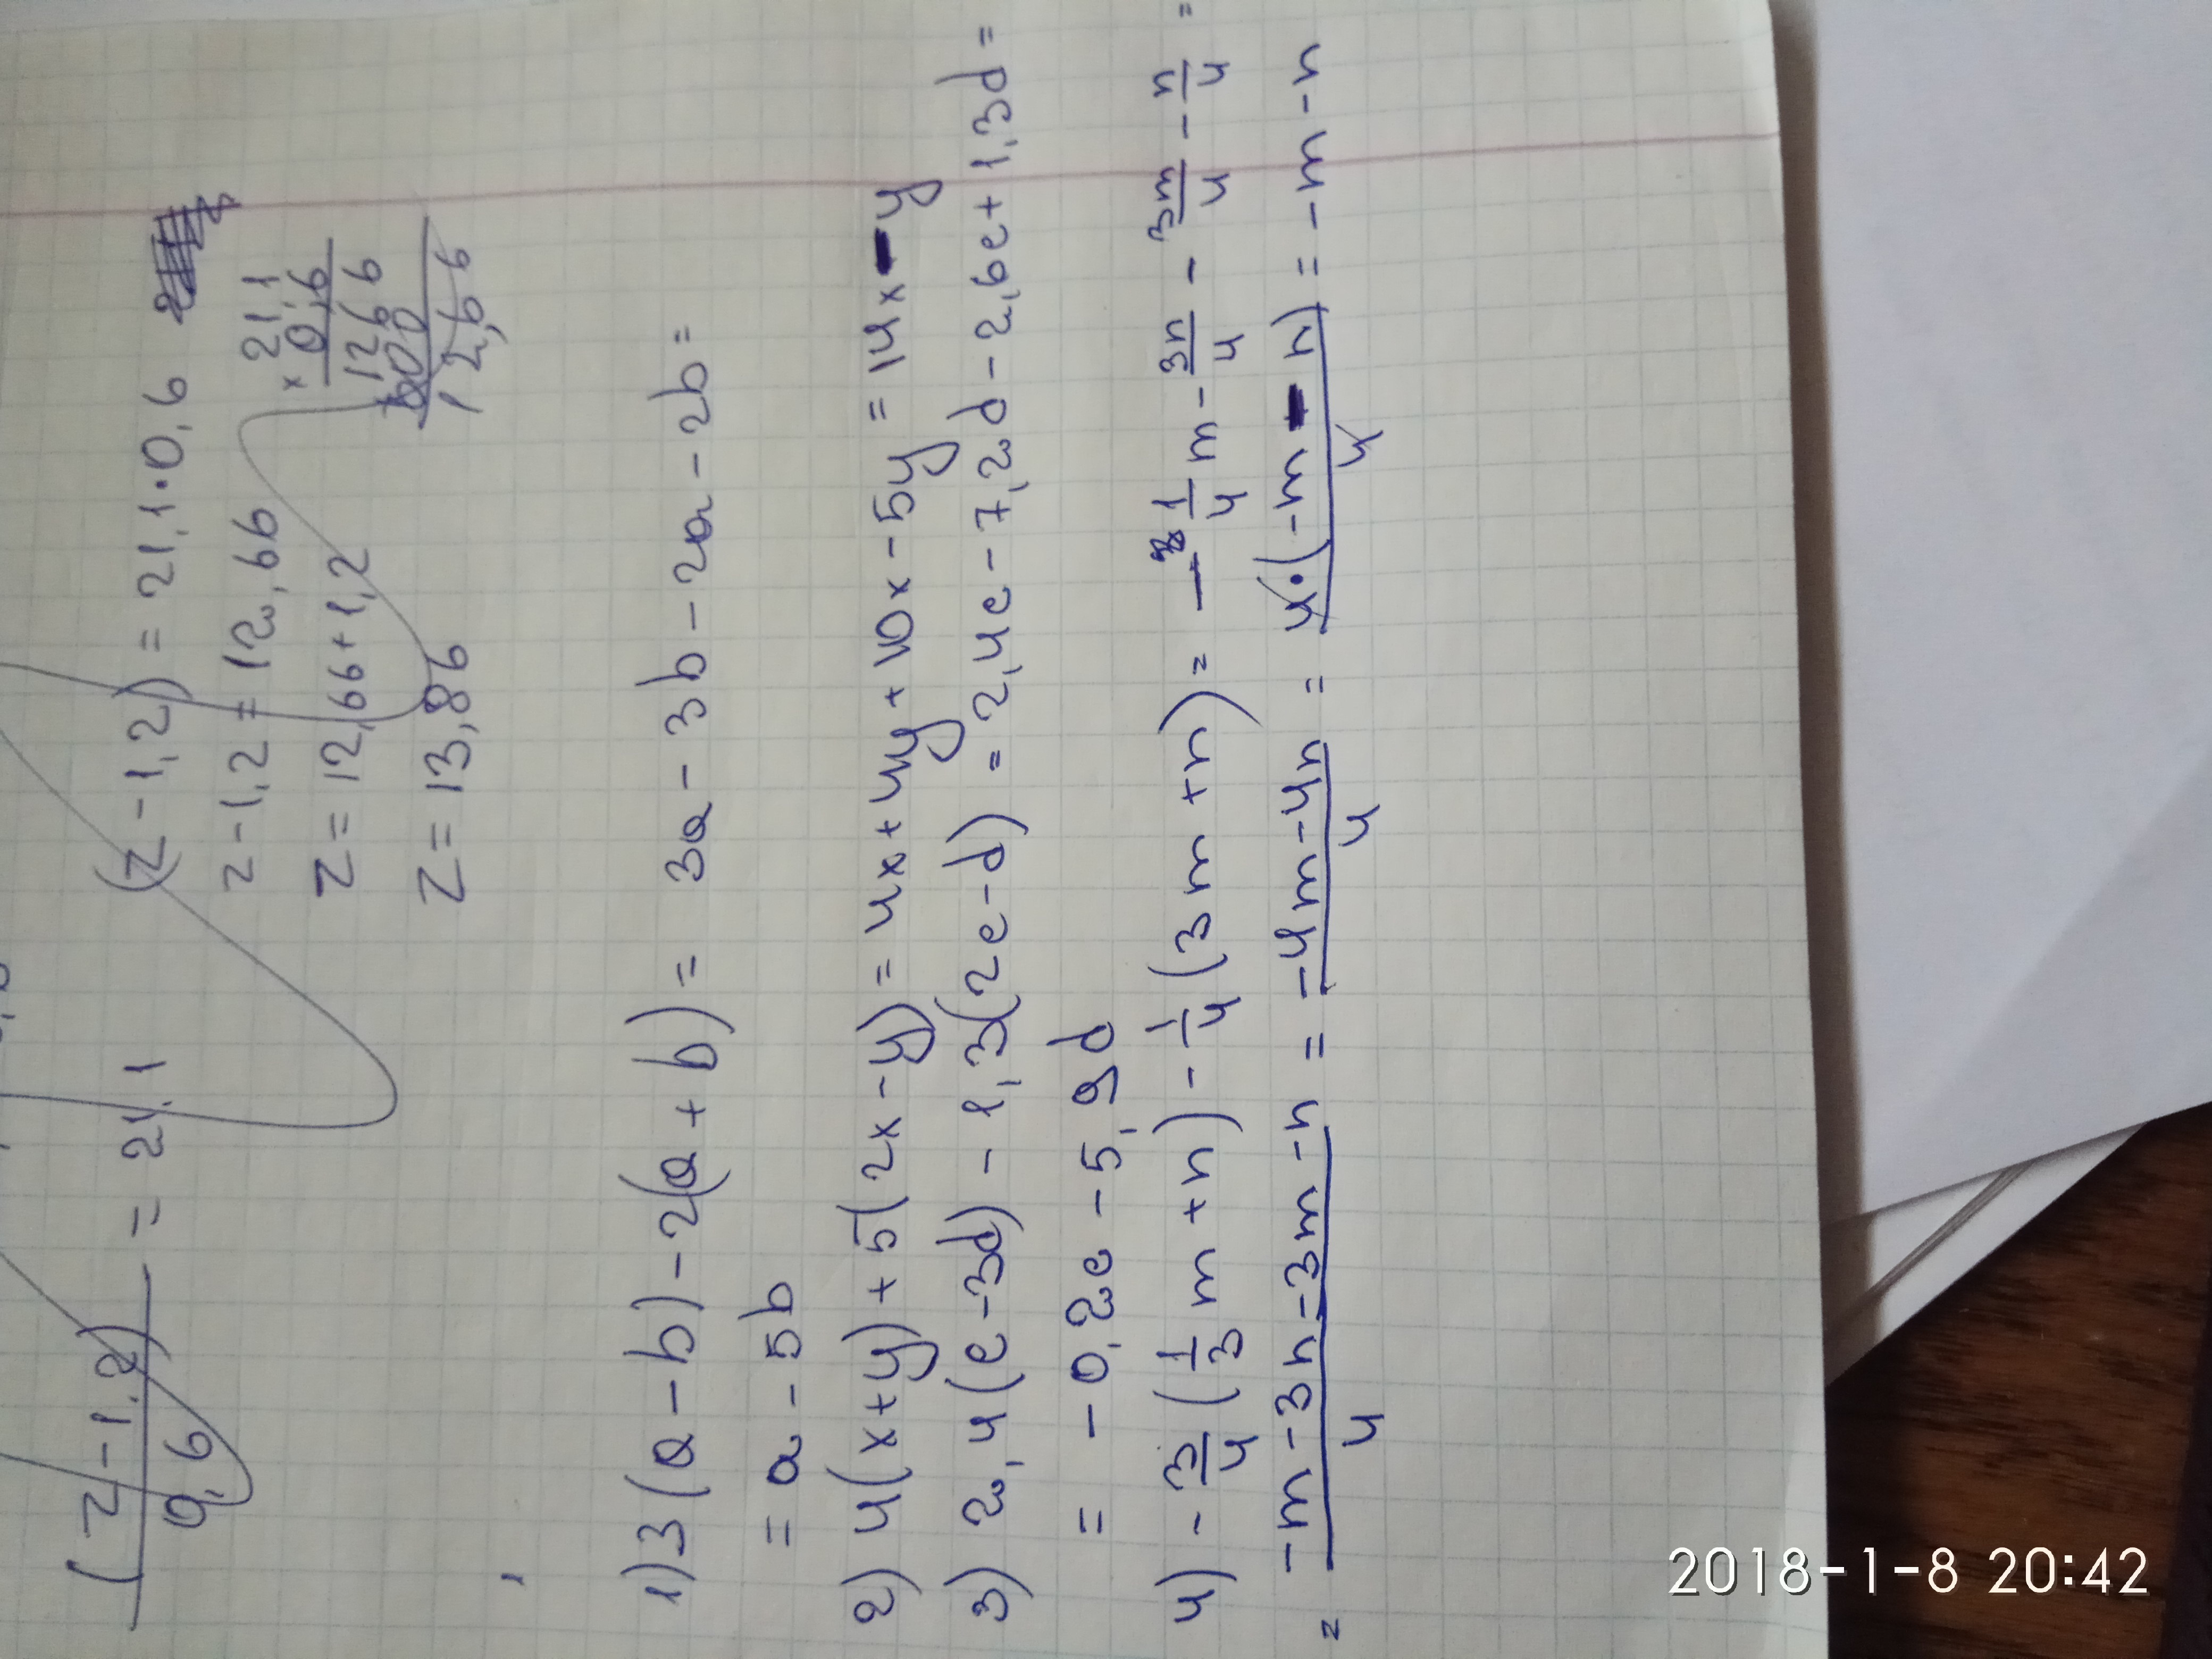 (z-1,2)/0,6 = 21,1
(z-1,2) = 21,1·0,6
z-1,2 = 12,66
z = 12,66+1,2
z = 13,86
× 21,1
0,6
1266
000
12,66
1) 3(a-b)-2(a+b) = 3a-3b-2a-2b =
= a-5b
2) 4(x+y)+5(2x-y) = 4x+4y+10x-5y = 14x-y
3) 2,4(e-3d)-1,3(2e-d) = 2,4e-7,2d-2,6e+1,3d =
= -0,2e-5,9d
4) -3/4(1/3m+n)-1/4(3m+n) = -1/4m-3n/4-3m/4-n/4 =
= (-m-3n-3m-n)/4 = (-4m-4n)/4 = 4·(-m-n)/4 = -m-n
2018-1-8 20:42